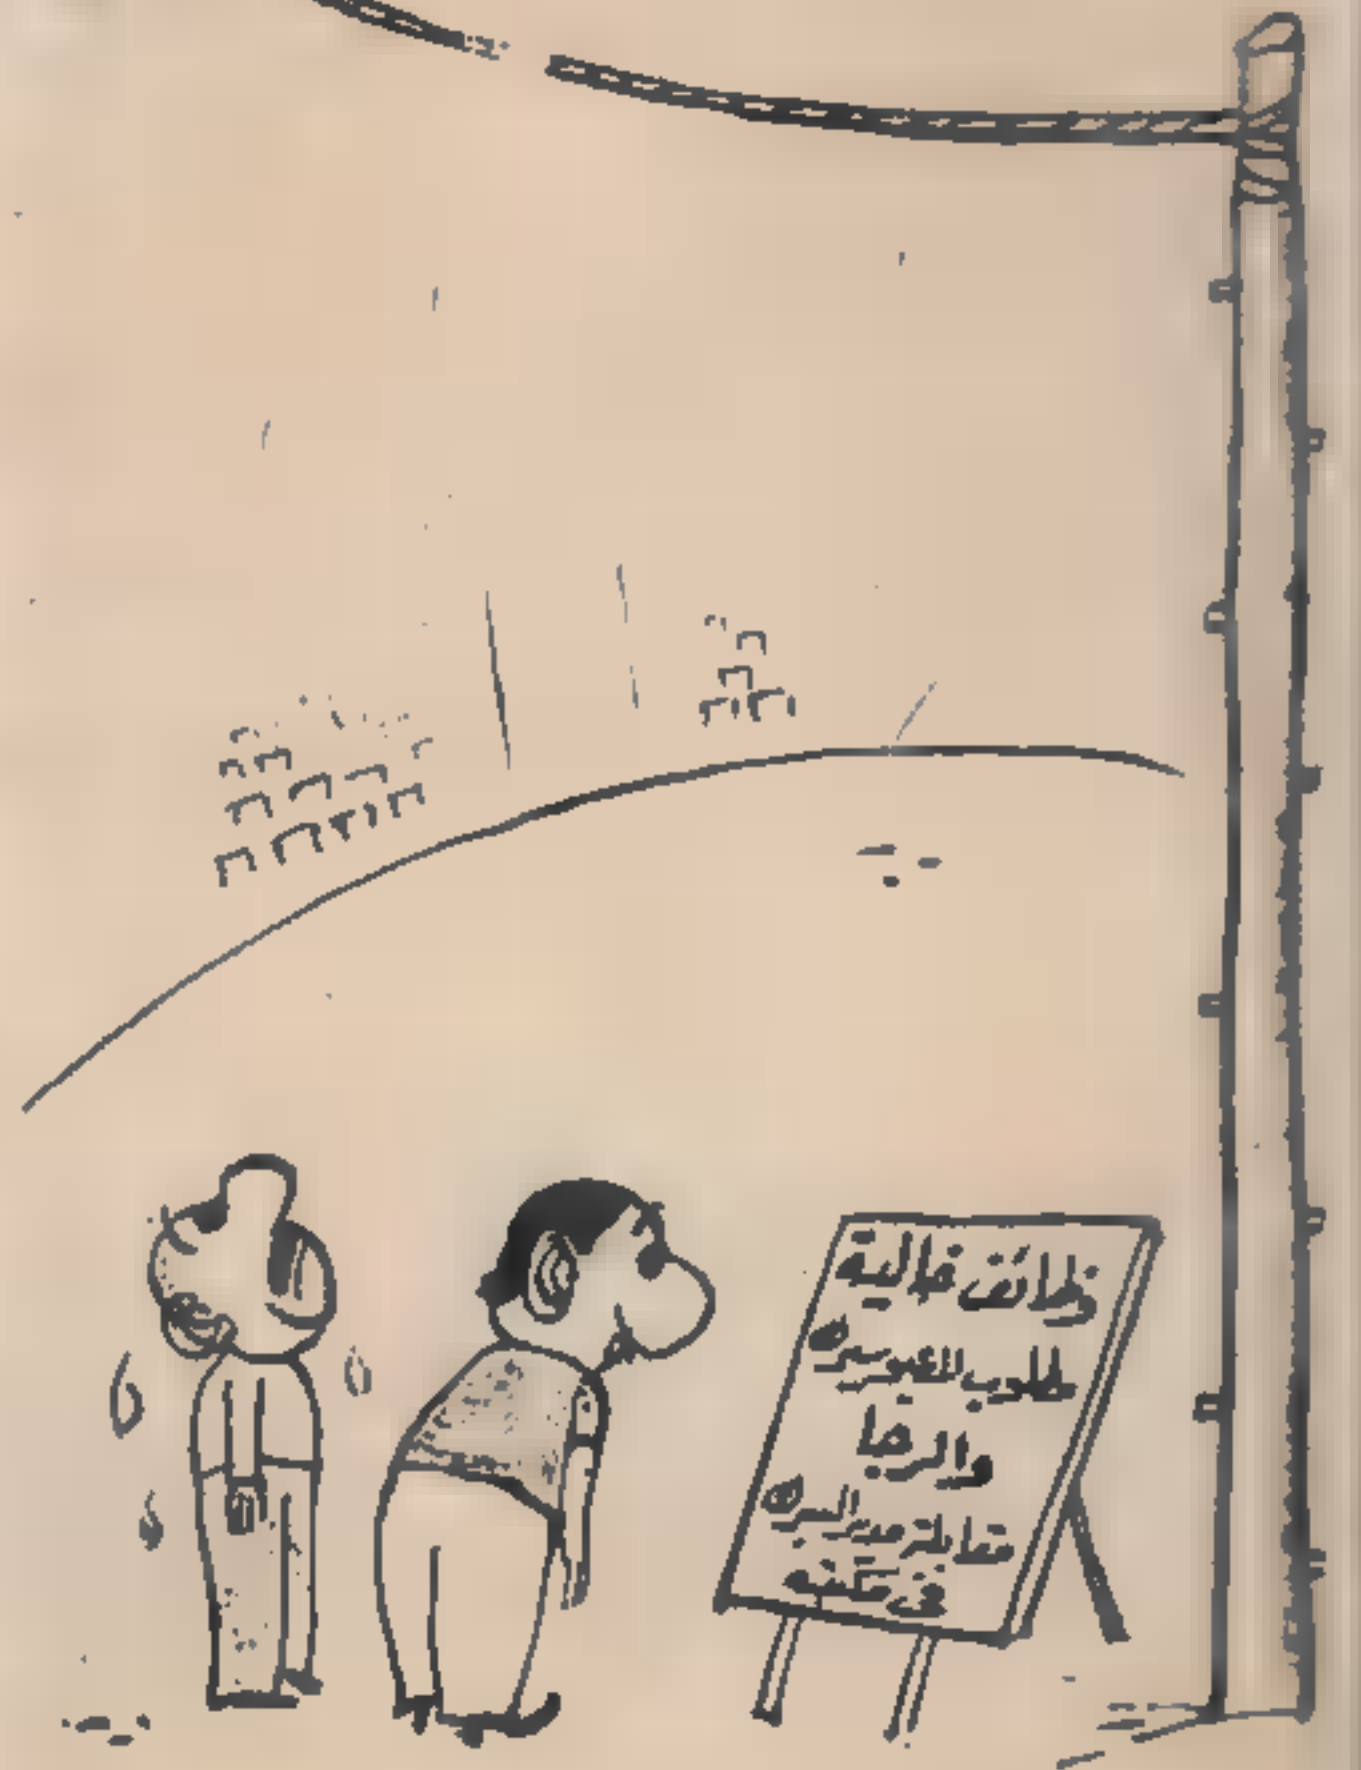 وظائف خالية
طلوب لاعبو سيرك
والرجا
مقابلة مدير السيرك
فى مكتبه